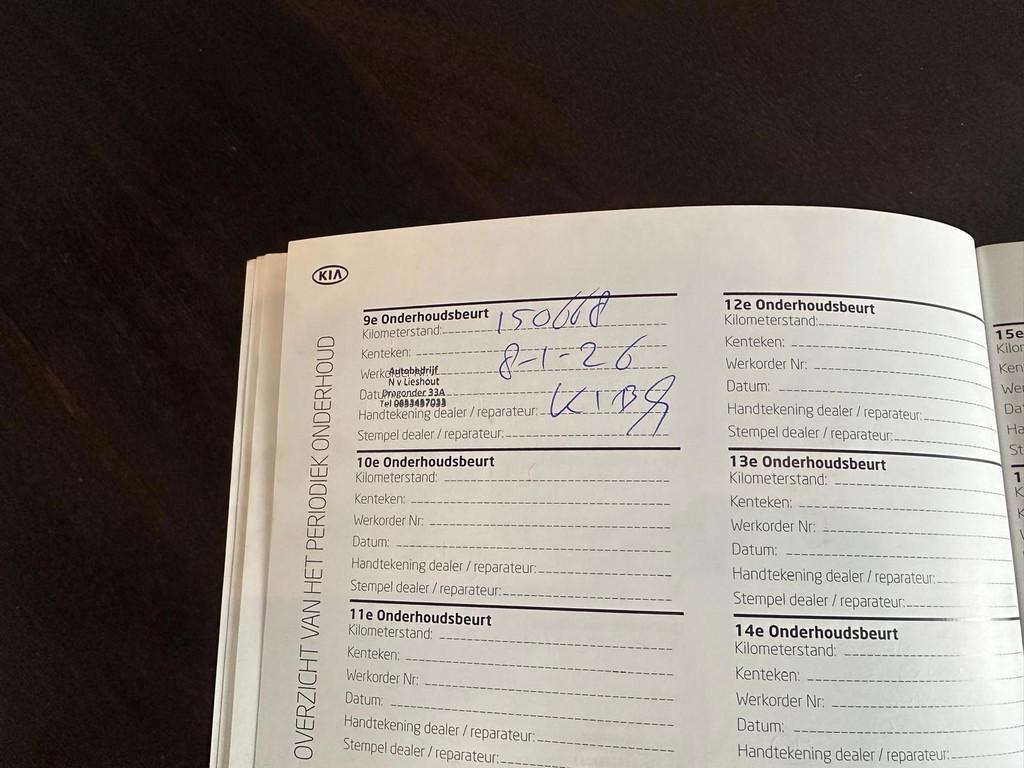 KIA
OVERZICHT VAN HET PERIODIEK ONDERHOUD
9e Onderhoudsbeurt
Kilometerstand: 150668
Kenteken: 8-1-26
Autobedrijf
N v Lieshout
Dragonder 33A
Tel 0653457033
Handtekening dealer / reparateur:
Stempel dealer / reparateur:
10e Onderhoudsbeurt
Kilometerstand:
Kenteken:
Werkorder Nr:
Datum:
Handtekening dealer / reparateur:
Stempel dealer / reparateur:
11e Onderhoudsbeurt
Kilometerstand:
Kenteken:
Werkorder Nr:
Datum:
Handtekening dealer / reparateur:
Stempel dealer / reparateur:
12e Onderhoudsbeurt
Kilometerstand:
Kenteken:
Werkorder Nr:
Datum:
Handtekening dealer / reparateur:
Stempel dealer / reparateur:
13e Onderhoudsbeurt
Kilometerstand:
Kenteken:
Werkorder Nr:
Datum:
Handtekening dealer / reparateur:
Stempel dealer / reparateur:
14e Onderhoudsbeurt
Kilometerstand:
Kenteken:
Werkorder Nr:
Datum:
Handtekening dealer / reparateur:
15e